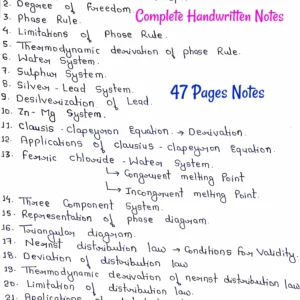 2. Degree of Freedom
Complete Handwritten Notes
3. Phase Rule.
4. Limitations of Phase Rule.
5. Thermodynamic derivation of phase Rule.
6. Water System.
7. Sulphur System.
8. Silver - Lead System.
47 Pages Notes
9. Desilverization of Lead.
10. Zn - Mg System.
11. Clausis - clapeyron Equation → Derivation.
12. Applications of clausius - clapeyron Equation.
13. Ferric chloride - Water System.
↳ Congruent melting Point
↳ Incongruent melting Point.
14. Three Component System.
15. Representation of phase diagram.
16. Triangular diagram.
17. Nernst distribution law → Conditions For Validity.
18. Deviation of distribution law
19. Thermodynamic derivation of nernst distribution law
20. Limitation of distribution law.
21.